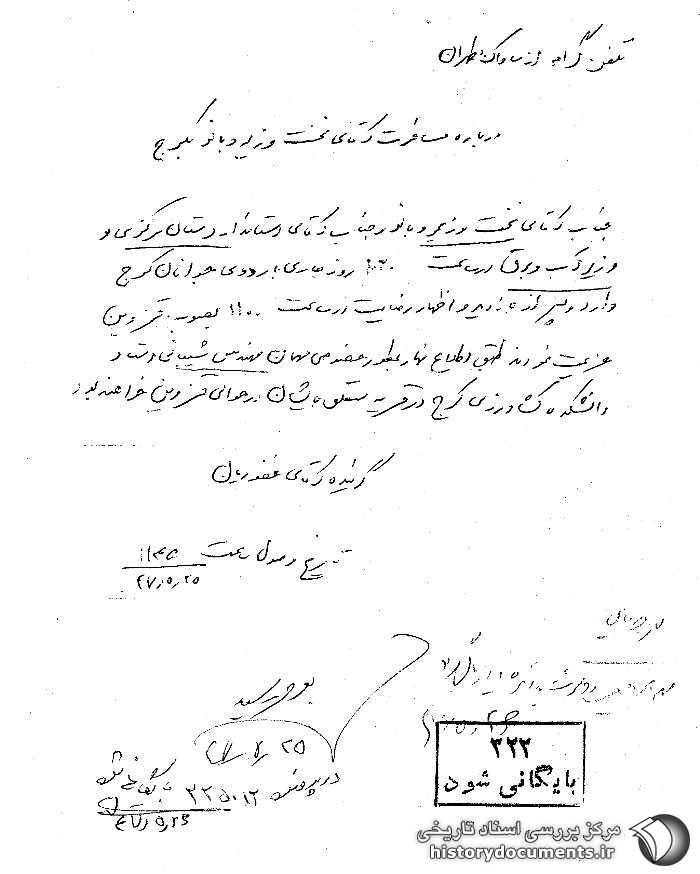 تلفن گرام از ساواک طهران
درباره مسافرت آقای نخست وزیر و بانو بکرج
جناب آقای نخست وزیر و بانو و جناب آقای استاندار استان مرکزی و
وزیر آب و برق در ساعت ۱۰۳۰ روز جاری باردوی جوانان کرج
وارد و پس از بازدید و اظهار رضایت در ساعت ۱۱۰۰ بصوب قزوین
عزیمت نمودند طبق اطلاع نهار بطور خصوصی مهمان مهندس شیبانی استاد
دانشکده کشاورزی کرج در قریه متعلق بایشان در حوالی قزوین خواهند بود
گوینده آقای غفوریان
تاریخ وصول ساعت ۱۱۴۵
۴۷٫۵٫۲۵
بعرض رسید
۲۵
در پرونده ۳۲۵۰۱۲ بایگانی
۴۷٫۵٫۲۶
۳۲۲
بایگانی شود
مرکز بررسی اسناد تاریخی
historydocuments.ir